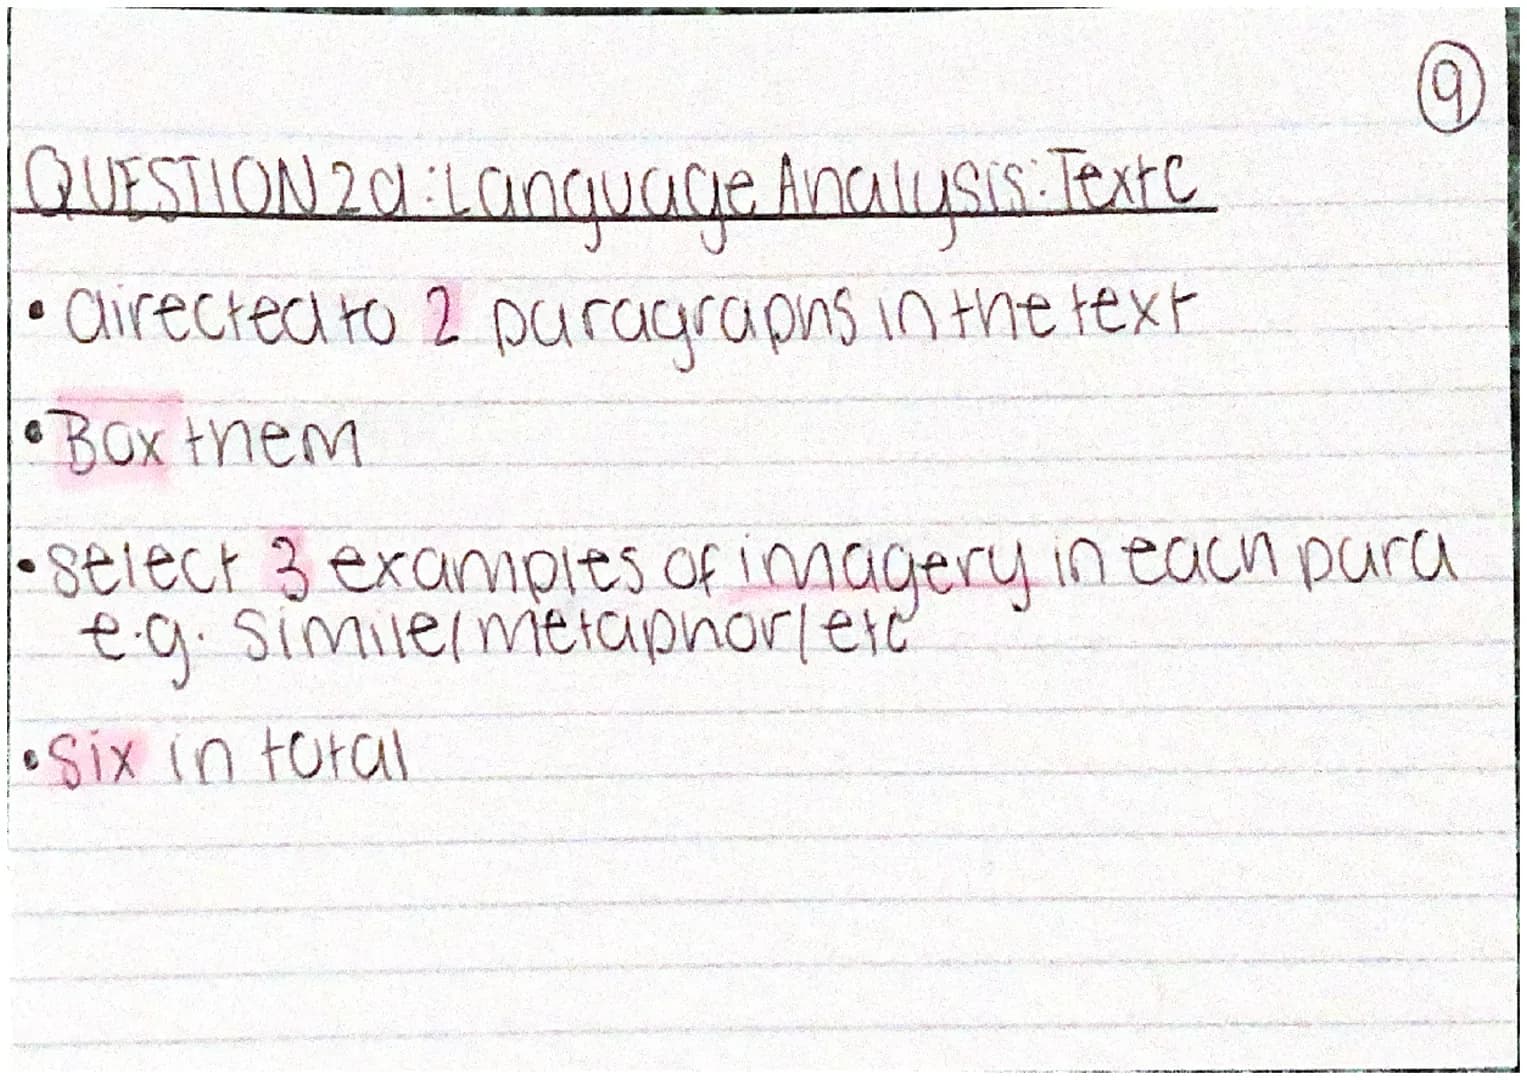 9
QUESTION 2a: Language Analysis: Text C
• directed to 2 paragraphs in the text
• Box them
• select 3 examples of imagery in each para
e.g. simile/metaphor/etc
• six in total